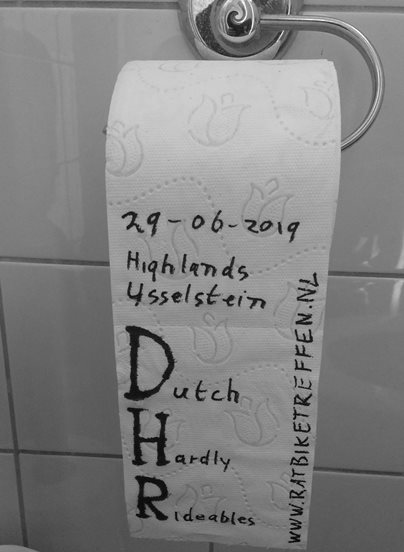 29-06-2019
Highlands
Ysselstein
Dutch
Hardly
Rideables
www.RATBIKETREFFEN.NL